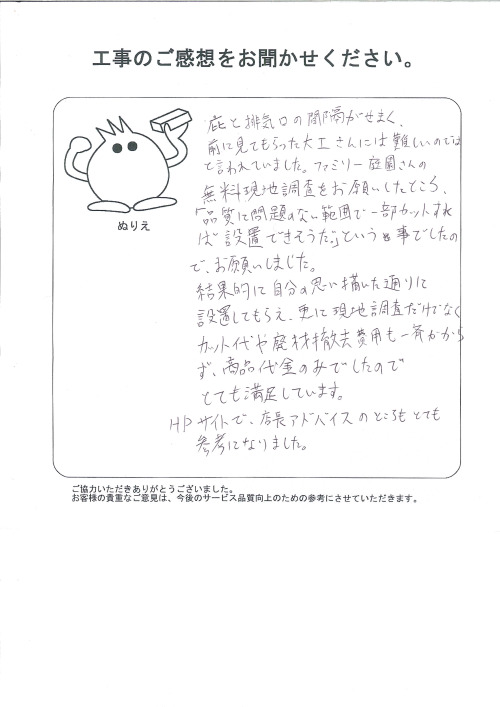 工事のご感想をお聞かせください。
庇と排気口の間隔がせまく、
前に見てもらった大工さんには難しいのでは
と言われていました。ファミリー庭園さんの
無料現地調査をお願いしたところ、
「品質に問題のない範囲で一部カットすれ
ば設置できそうだ。」という事でしたの
で、お願いしました。
結果的に自分の思い描いた通りに
設置してもらえ、更に現地調査だけでなく
カット代や廃材撤去費用も一斉かから
ず、商品代金のみでしたので
とても満足しています。
HPサイトで、店長アドバイスのところもとても
参考になりました。
ぬりえ
ご協力いただきありがとうございました。
お客様の貴重なご意見は、今後のサービス品質向上のための参考にさせていただきます。